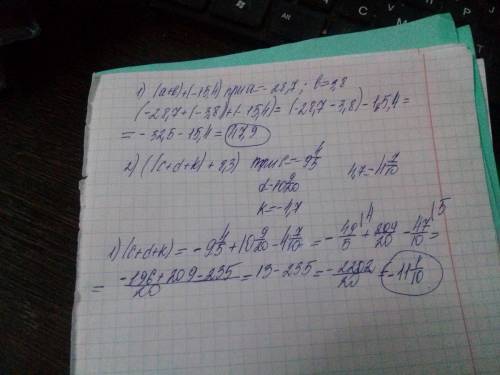 1) (а+в)+(-15,4) при а=-28,7; в=3,8
(-28,7+(-3,8)+(-15,4)=(-28,7-3,8)-15,4=
=-32,5-15,4=47,9
2) ((c+d+k)+2,3) при c=-9 4/5
d=10 9/20 4,7=4 7/10
k=-4,7
1)(c+d+k)=-9 4/5+10 9/20-4 7/10=-49/5+209/20-47/10=
=-196+209-235/20=13-235=-222/20=-11 1/10